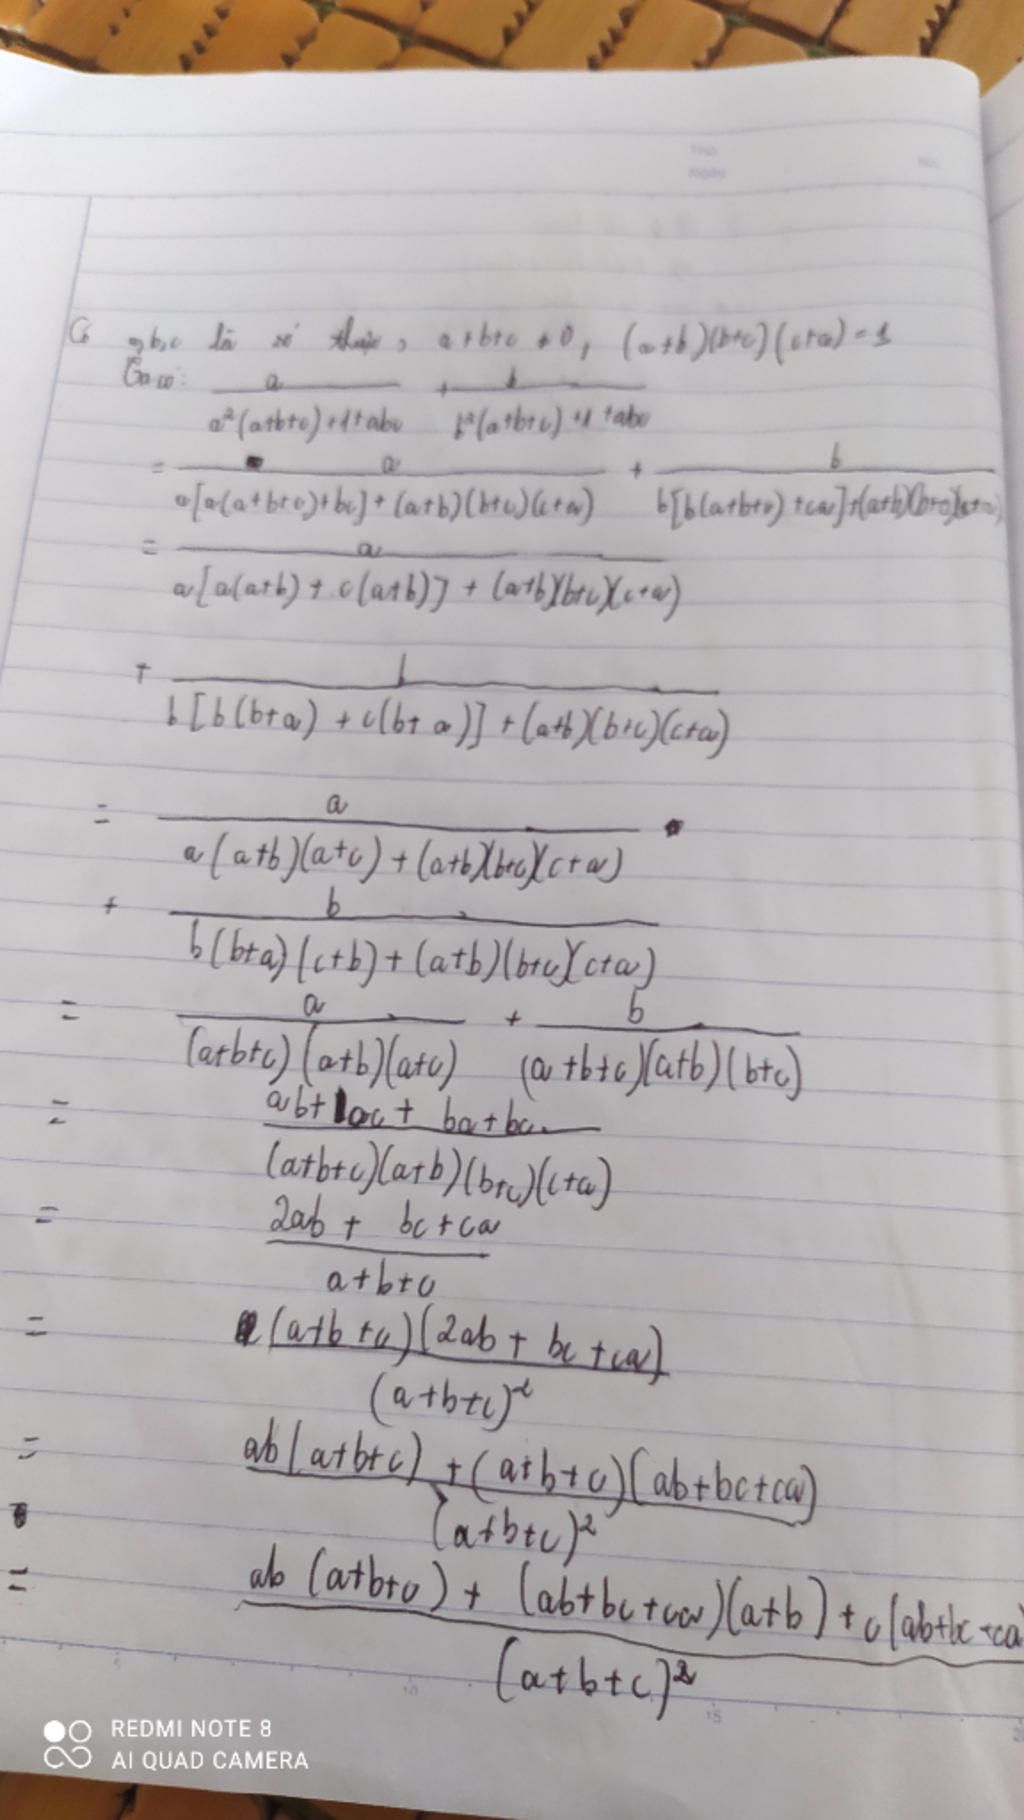 Có a,b,c là số thực, a+b+c ≠ 0, (a+b)(b+c)(c+a) = 1
Ta có: a / (a²(a+b+c)+1+abc) + b / (b²(a+b+c)+1+abc)
= a / (a[a(a+b+c)+bc]+(a+b)(b+c)(c+a)) + b / (b[b(a+b+c)+ca]+(a+b)(b+c)(c+a))
= a / (a[a(a+b) + c(a+b)] + (a+b)(b+c)(c+a))
+ b / (b[b(b+a) + c(b+a)] + (a+b)(b+c)(c+a))
= a / (a(a+b)(a+c) + (a+b)(b+c)(c+a))
+ b / (b(b+a)(c+b) + (a+b)(b+c)(c+a))
= a / ((a+b+c)(a+b)(a+c)) + b / ((a+b+c)(a+b)(b+c))
= (ab + ac + ba + bc) / ((a+b+c)(a+b)(b+c)(c+a))
= (2ab + bc + ca) / (a+b+c)
= (a+b+c)(2ab + bc + ca) / (a+b+c)²
= (ab(a+b+c) + (a+b+c)(ab+bc+ca)) / (a+b+c)²
= (ab(a+b+c) + (ab+bc+ca)(a+b) + c(ab+bc+ca) / (a+b+c)²
REDMI NOTE 8
AI QUAD CAMERA